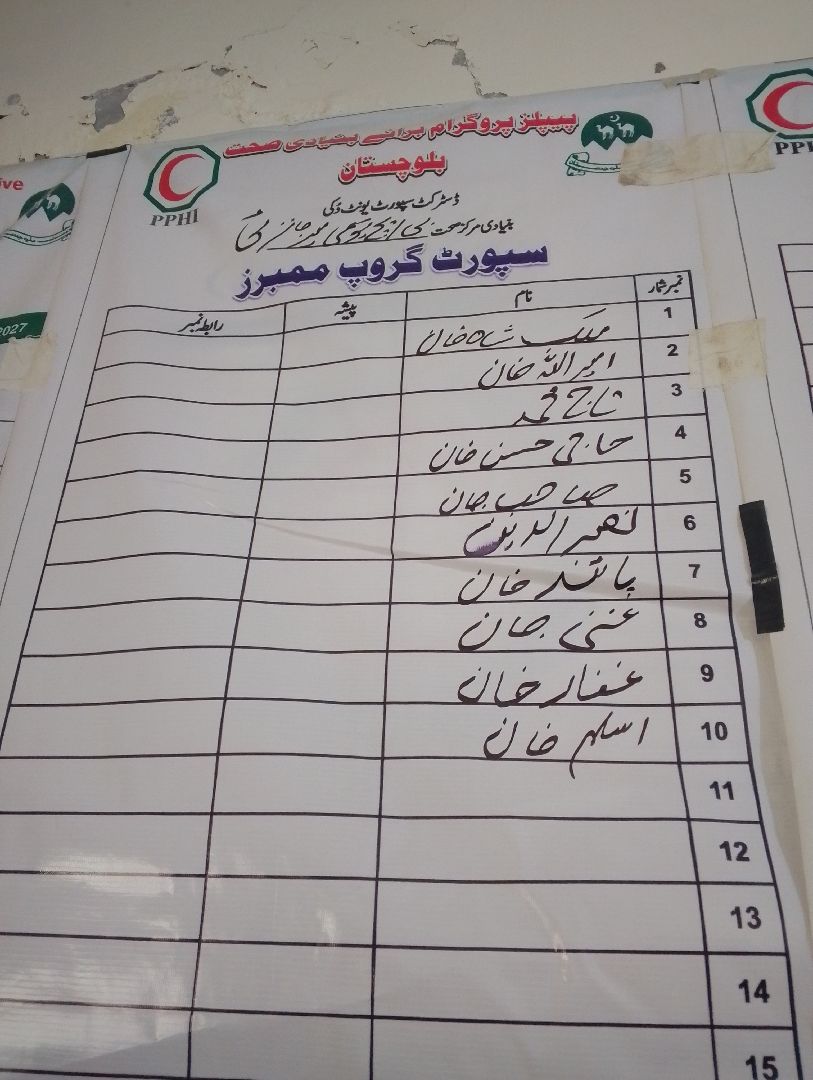 ive
2027
PPHI
پیپلز پروگرام برائے بنیادی صحت
بلوچستان
ڈسٹرکٹ سپورٹ یونٹ دکی
بنیادی مرکز صحت
سپورٹ گروپ ممبرز
نمبر شمار نام پیشہ رابطہ نمبر
1 ملک شاہ خان
2 امیر اللہ خان
3 تاج محمد
4 حاجی حسن خان
5 صاحب جان
6 نصر الدین
7 پائند خان
8 غنی جان
9 غفار خان
10 اسلم خان
11
12
13
14
15
PPH